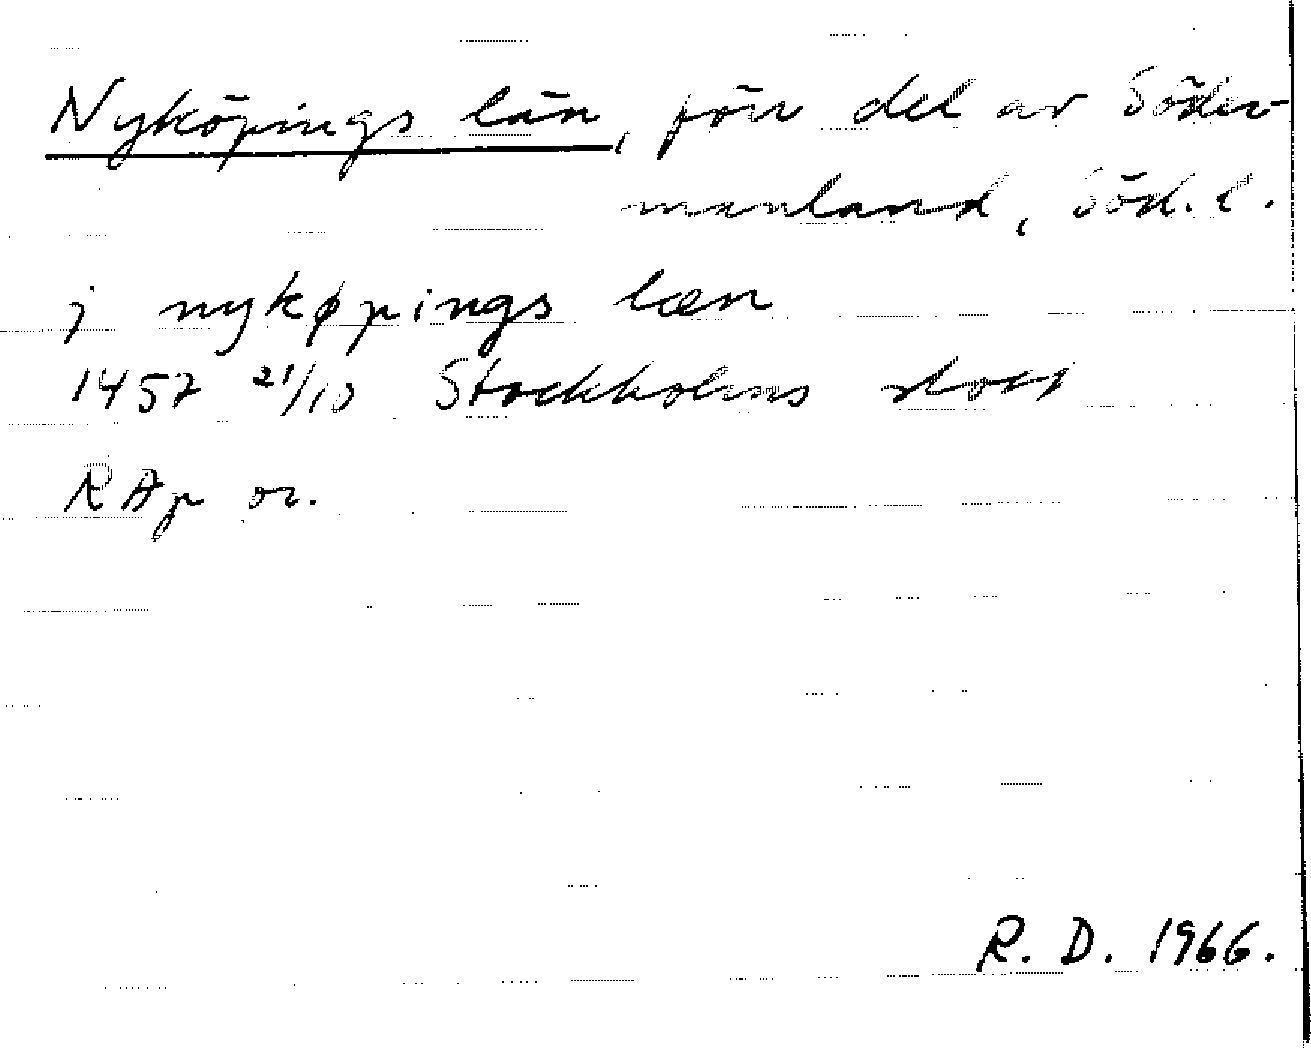 Nyköpings län, förr del av Söder-
manland, Söd. l.
j nykøpings læn
1457 21/10 Stockholms slott
RAp or.
R. D. 1966.